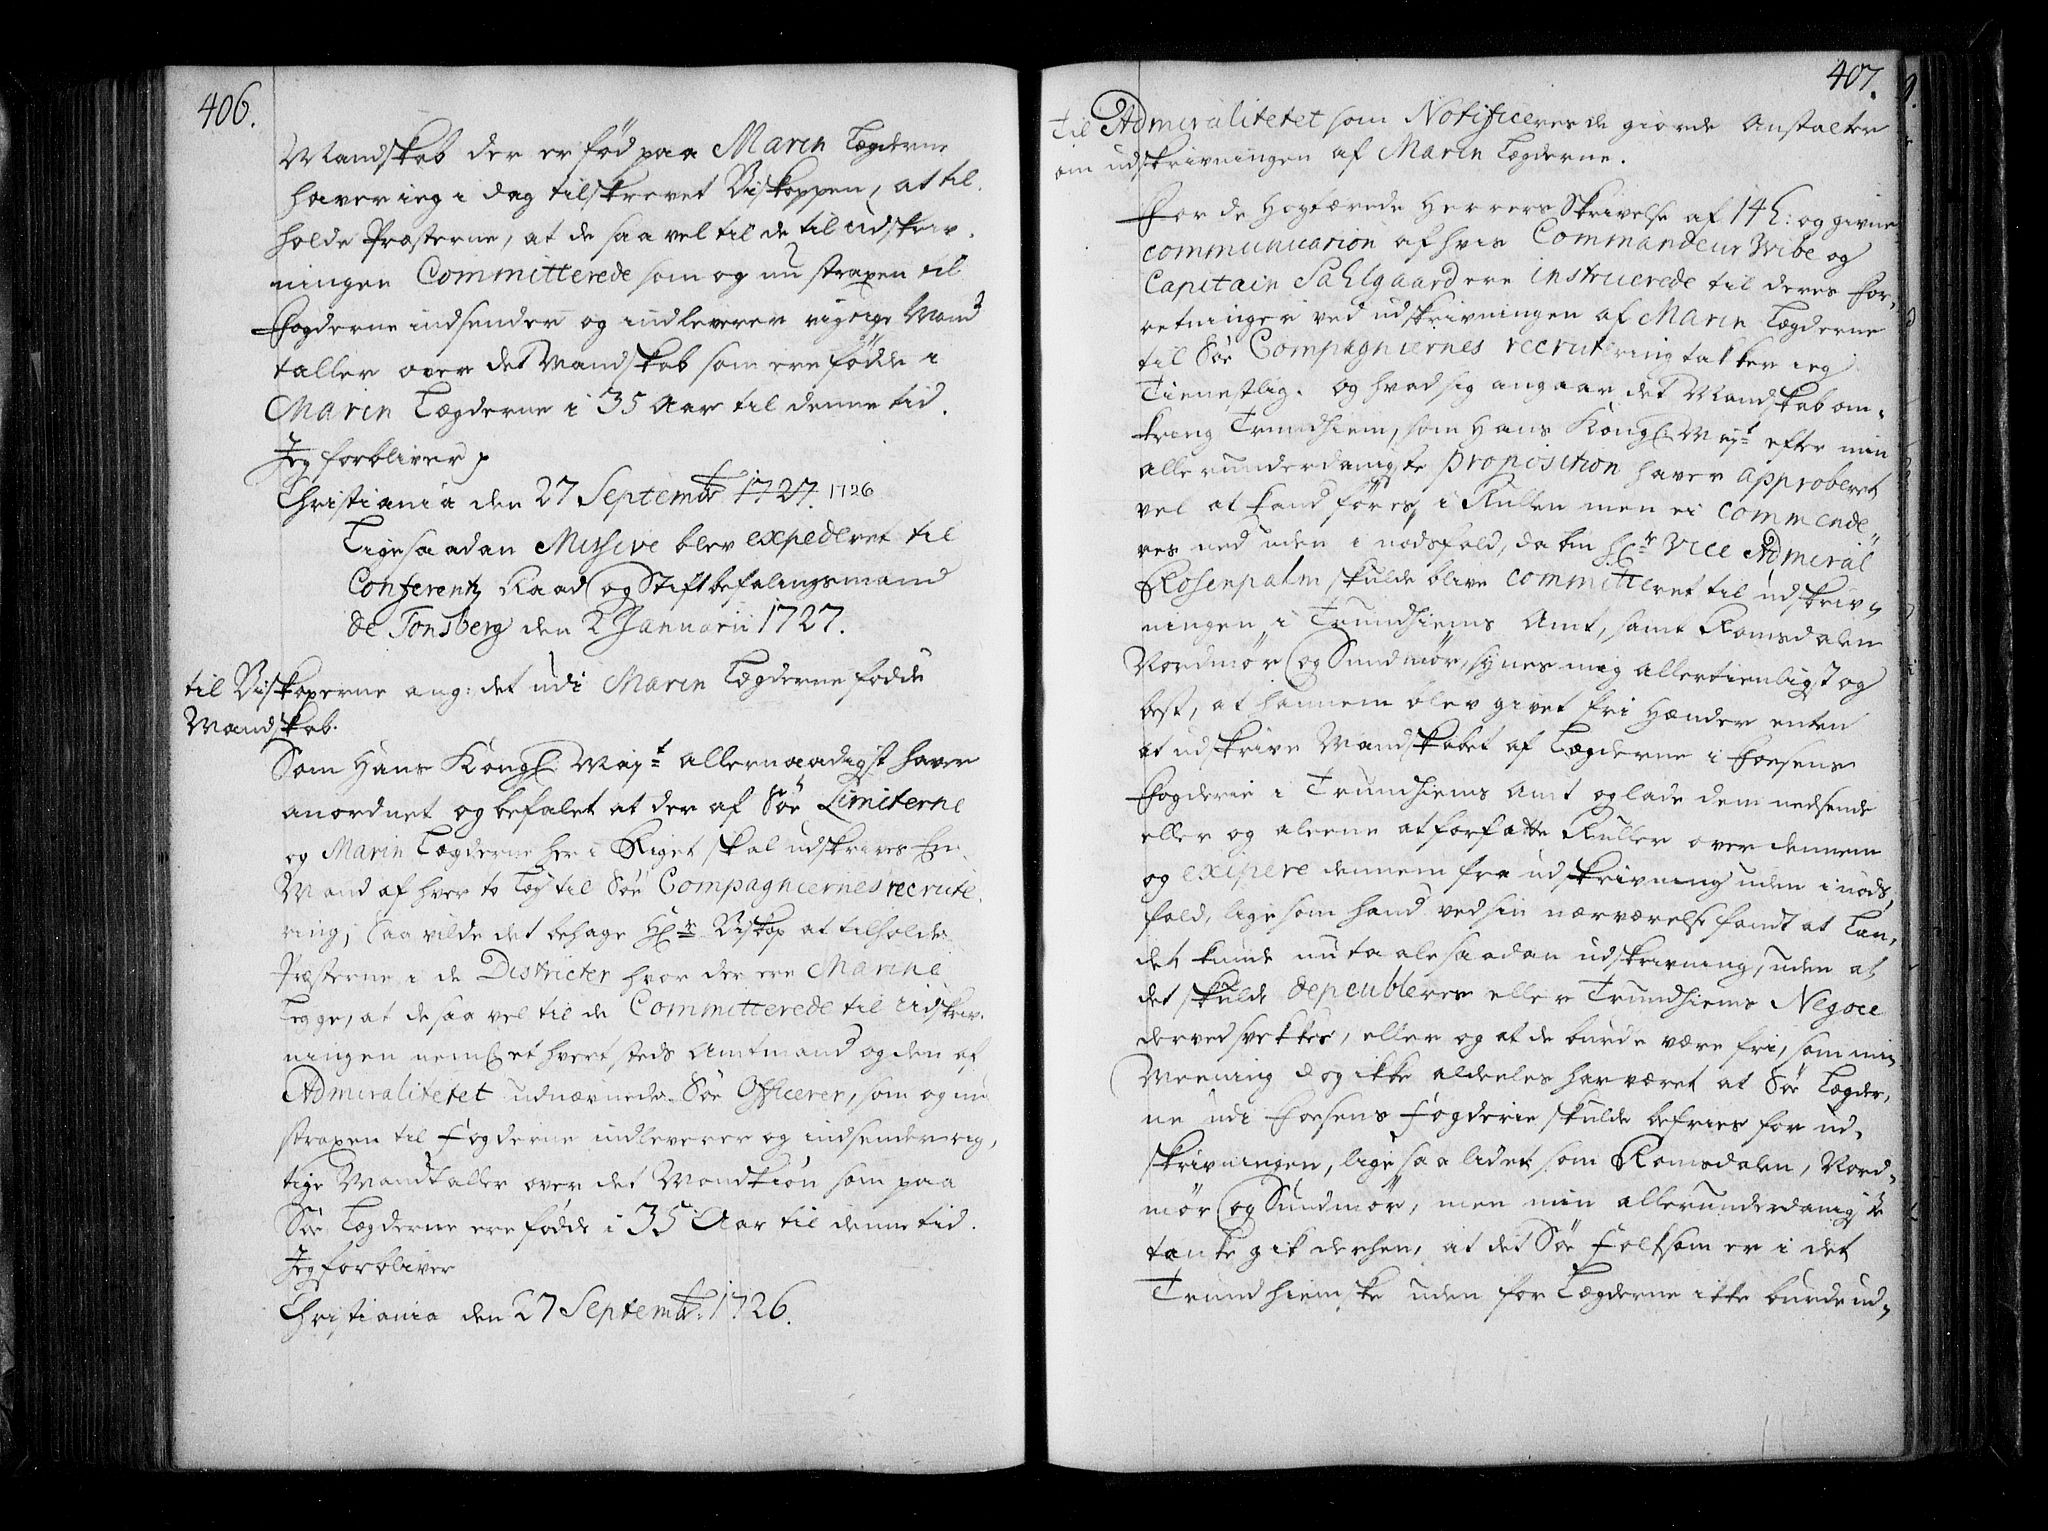 406.
Mandskab der er fød paa Marin Legderne
haver ieg i dag tilskrevet Biskoppen, at til.
holde Præsterne, at de saa vel til de til udskriv.
ningen Committerede som og nu strapen til
Fogderne indsender og indleverer rigtige Mand
taller over det Mandskab som ere fødde i
Marin Legderne i 35 Aar til denne tid.
Jeg forbliver p
Christiania den 27 Septembr 1727. 1726
Ligesaadan Missive blev expederet til
Conferentz Raad og Stiftbefalingsmand
de Tonsberg den 2 Januarii 1727.
til Biskoperne ang: det udi Marin Legderne fødde
Mandskab.
Som Hans Kongl. Mayt allernaadigst haver
anordnet og befalet at der af Søe Limiterne
og Marin Legderne her i Riget skal udskrives En
Mand af hver to Leg til Søe Compagniernes recrute.
ring, Saa vilde det behage Hr. Biskop at tilholde
Præsterne i de Districter hvor der ere Marine
Legge, at de saa vel til de Committerede til udskriv.
ningen neml. et hvert steds Amtmand og den af
Admiralitetet udnævnede Søe Officerer, som og nu
strapen til Fogderne indleverer og indsender rig,
tige Mandtaller over det Mandkiøn som paa
Søe Legderne ere fødde i 35 Aar til denne tid.
Jeg forbliver
Christiania den 27 Septembr: 1726.
407.
til Admiralitetet som Notificeres de giorde Anstalter
om udskrivningen af Marin Legderne.
For de Høgtærede Herrers Skrivelse af 14 h: og givne
communication af hvis Commandeur Wibe og
Capitain Sahlgaard ere instruerede til deres For,
retninger ved udskrivningen af Marin Legderne
til Søe Compagniernes recrutering takker ieg
Tienestlig. og hvad sig angaar det Mandskab om,
kring Trundhiem, som Hans Kongl. Mayt efter min
allerunderdanigste proposition haver approberet
vel at kand føres i Rullen men ei commende,
res ned uden i nødsfald, da bem Hr Vice Admiral
Rosenpalm skulde blive committeret til udskriv,
ningen i Trundhiems Amt, samt Romsdalen
Nordmør og Sundmør, synes mig allertienligst og
best, at hannem blev givet fri Hænder enten
at udskrive Mandskabet af Legderne i Fosens
Fogderie i Trundhiems Amt og lade dem nedsende
eller og aleene at forfatte Ruller over dennem
og exipere dennem fra udskrivning uden i nøds,
fald, lige som hand ved sin nærværelse fandt at Lan,
det kunde nu taale saadan udskrivning, uden at
det skulde depeubleres eller Trundhiems Negoce
derved svekkes, eller og at de burde være fri, som min
Meening dog ikke aldeeles har været at Søe Legder,
ne udi Fosens Fogderie skulde befries for ud,
skrivningen, lige saa lidet som Romsdalen, Nord,
mør og Sundmør, men min allerunderdanigste
tanke gik derhen, at det Søe Folk som er i det
Trundhiemske uden for Legderne ikke burde ud,